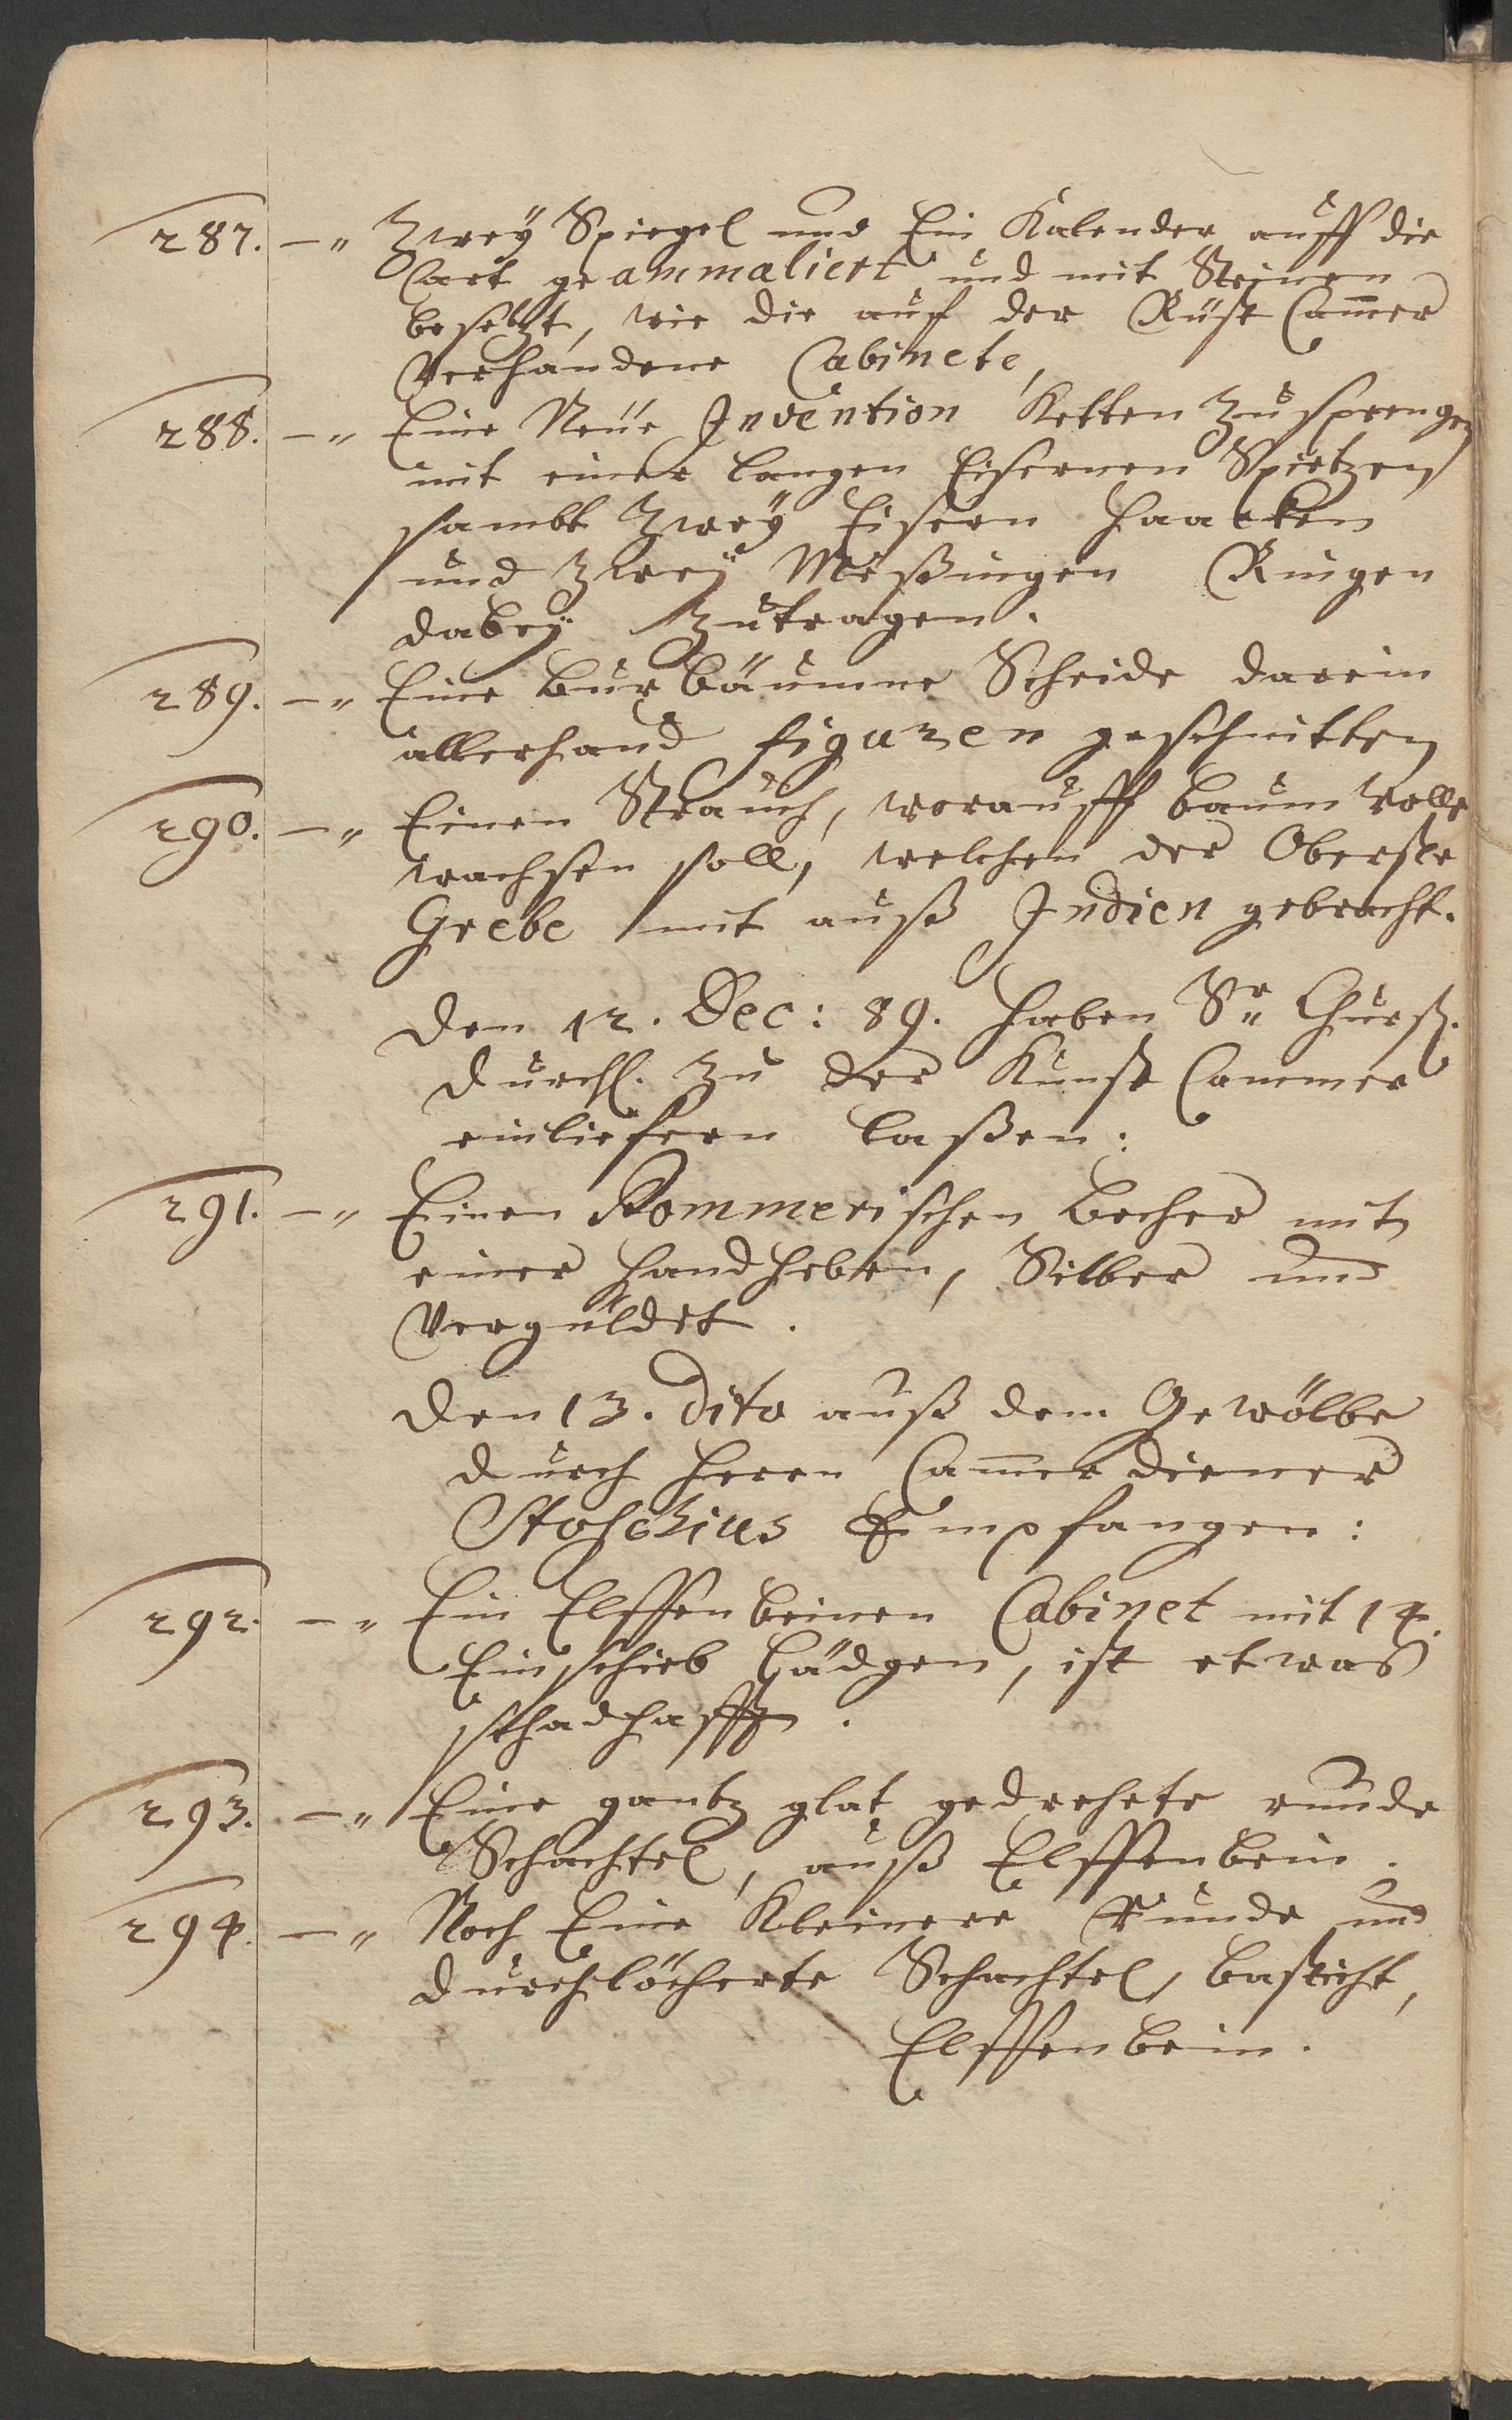 287. —" Zweÿ Spiegel und Ein Kalender auff die
art geammaliert und mit Steinen
besetzt, wie die auf der Rüst Cam̅er
Verhandene Cabinete,
288. —" Eine Neüe Invention Ketten zu sprengen
mit einer langen Eisernen Spietzen
sambt zweÿ Eisern Haacken
und zweÿ Meßingen Ringen
dabeÿ zutragen.
289. —" Eine burbäumne Scheide darein
allerhand figuren geschnitten
290. —" Einen Strauch, worauff baum wolle
wachsen soll, welchen der Oberste
Grebe mit auß Indien gebracht.
Den 12. Dec: 89. haben Sr. Churf.
Durchl. zu der Kunst Cammer
einliefern laßen:
291. —" Einen Pommerischen Becher mit
einer handheben, Silber und
Vergüldet.
Den 13. dito auß dem Gewölbe
durch Herrn Cam̅er diener
Stoschius Empfangen:
292. —" Ein Elffenbeinen Cabinet mit 14.
Einschieb Lädgen, ist etwas
schadhafft.
293. —" Eine gantz glat gedrehete runde
Schachtel, auß Elffenbein.
294. —" Noch Eine Kleinere Runde und
durchlöcherte Schachtel,
Elffenbein.